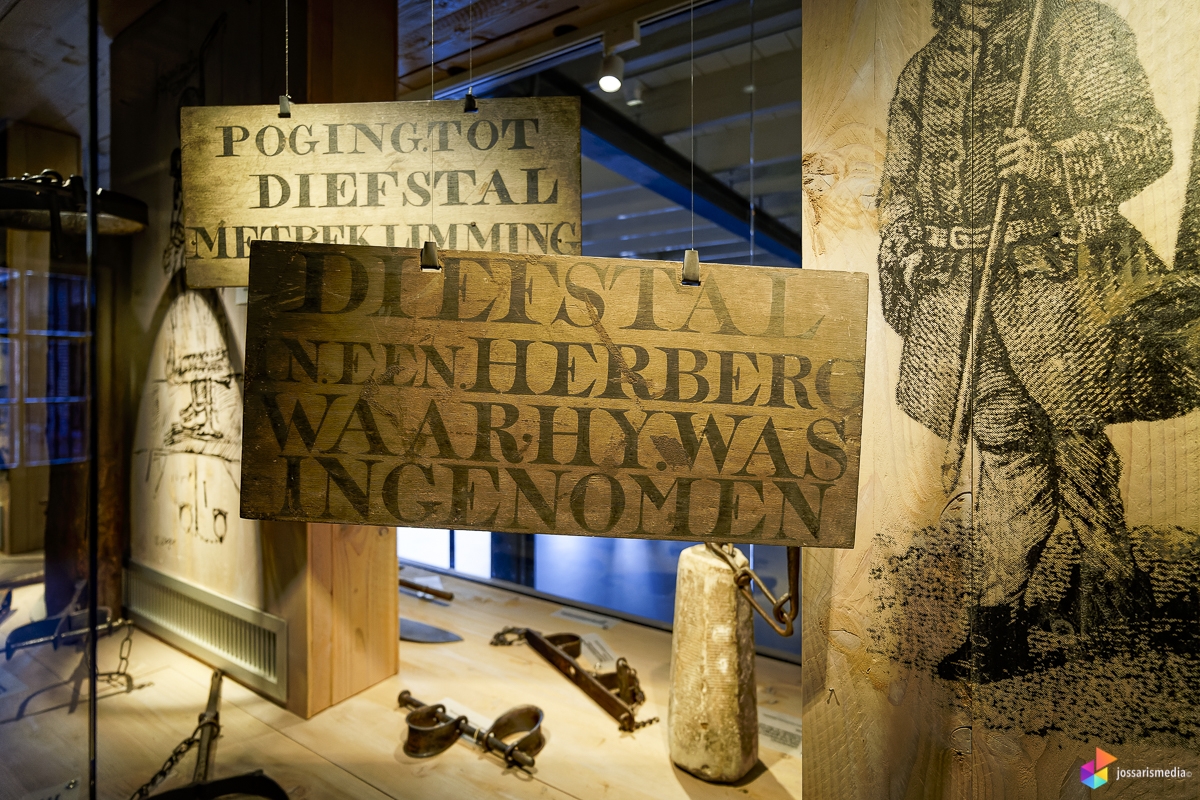 POGING.TOT
DIEFSTAL
MET.BEKLIMMING
DIEFSTAL
IN.EEN.HERBERG
WAARHY.WAS
INGENOMEN
jossarismedia©